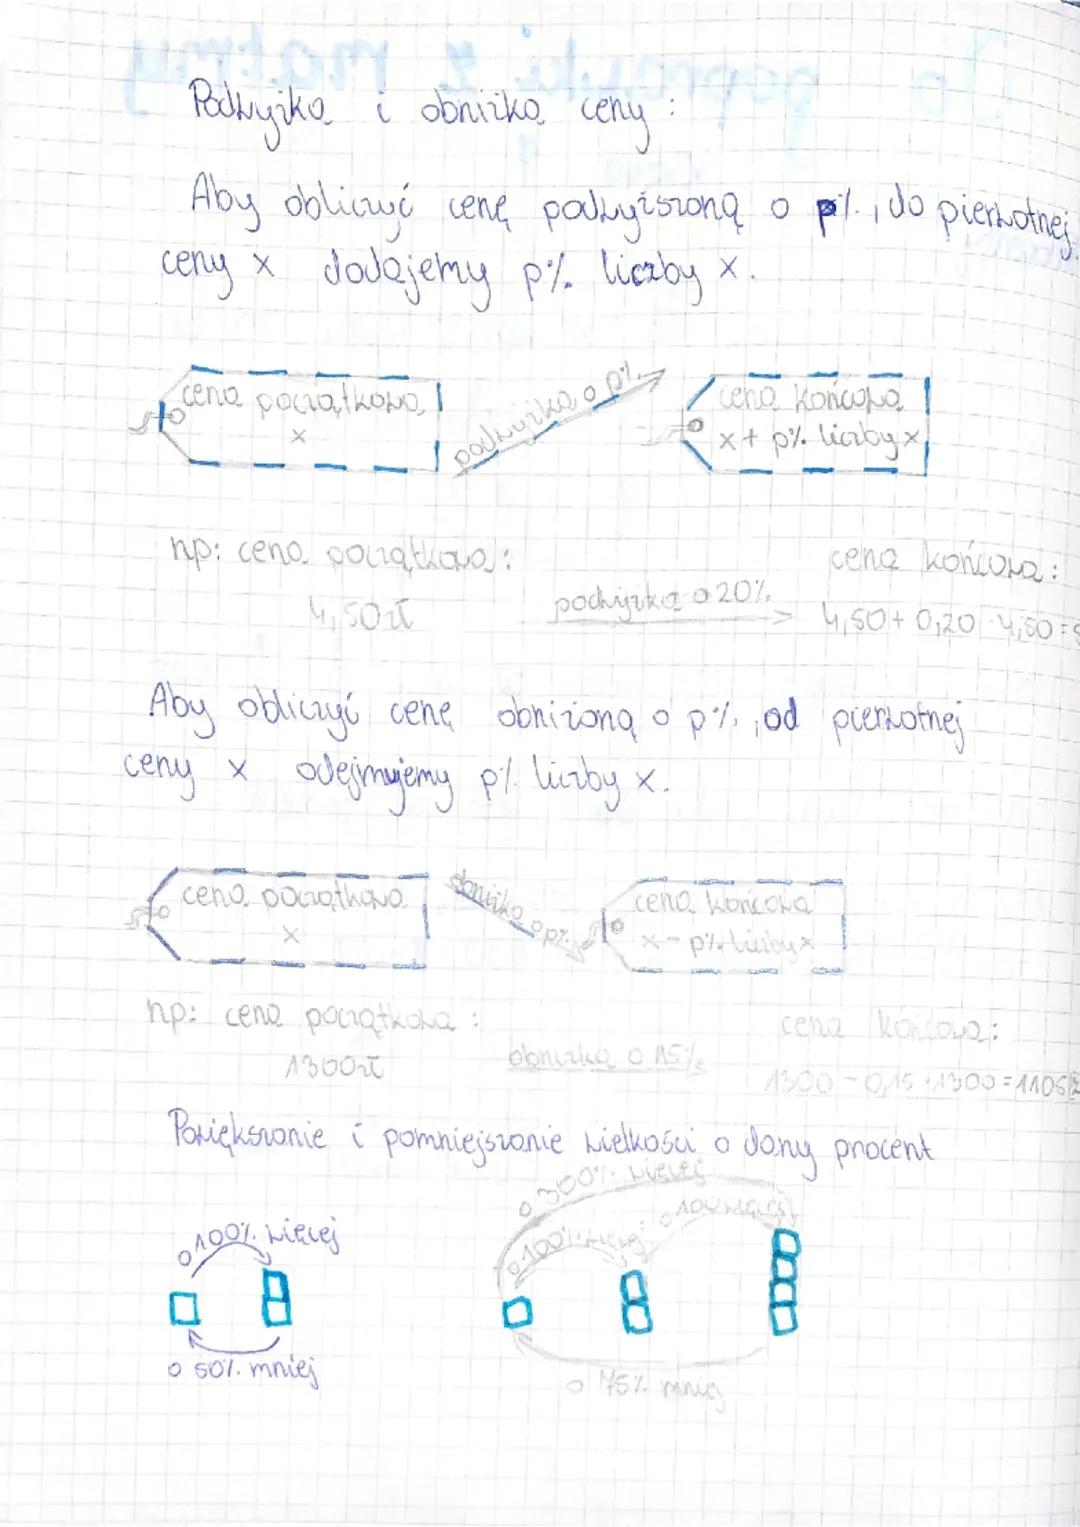 Podwyżka i obniżka ceny :
Aby obliczyć cenę podwyższoną o p%, do pierwotnej
ceny x dodajemy p% liczby x.
cena początkowa
x
podwyżka o p%
cena końcowa
x + p% liczby x
np: cena początkowa: cena końcowa:
4,50zł podwyżka o 20% 4,50 + 0,20 · 4,50 =
Aby obliczyć cenę obniżoną o p%, od pierwotnej
ceny x odejmujemy p% liczby x.
cena początkowa
x
obniżka o p%
cena końcowa
x - p% liczby x
np: cena początkowa : cena końcowa:
1300zł obniżka o 15% 1300 - 0,15 · 1300 = 1105
Powiększanie i pomniejszanie wielkości o dany procent
o 300% więcej
o 100% więcej
o 100% więcej
o 100 więcej
o 50% mniej
o 75% mniej